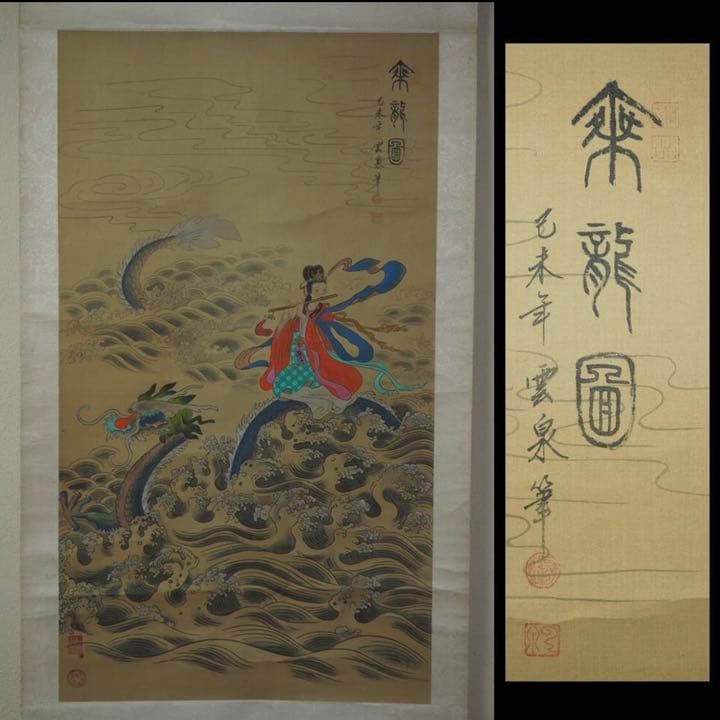 乘龍圖
己未年 雲泉筆
乘龍圖
己未年 雲泉筆